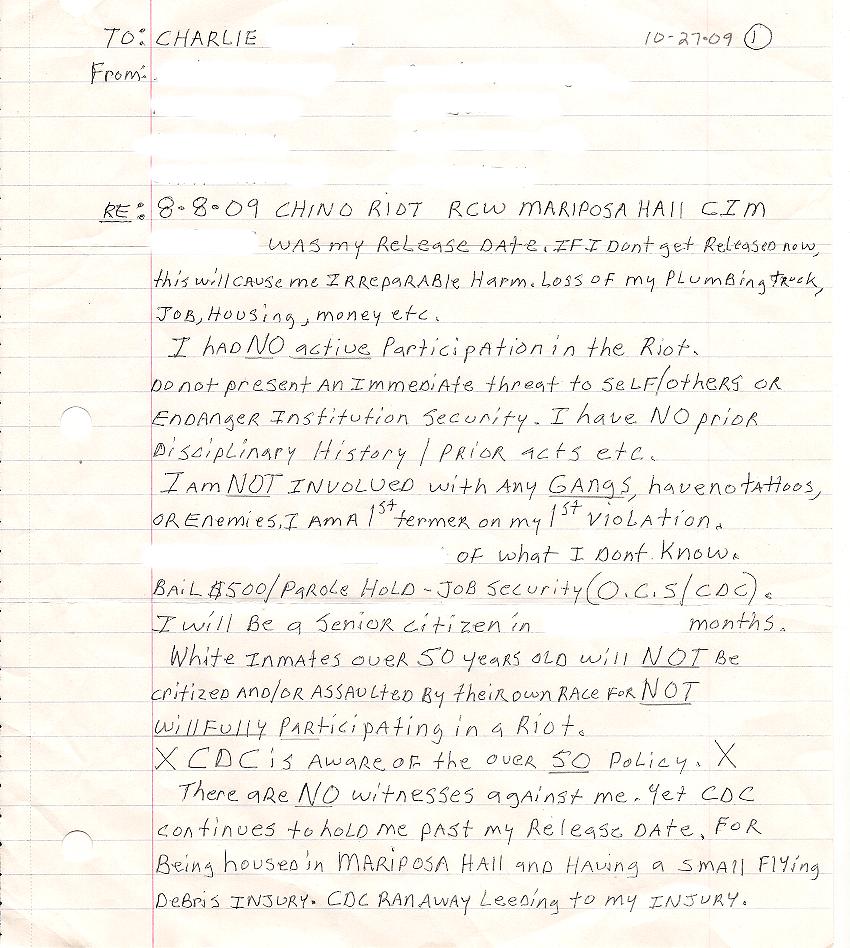 TO: CHARLIE
10-27-09 1
From:
RE: 8-8-09 CHINO RIOT RCW MARIPOSA HAll CIM
WAS my Release Date. IF I Dont get Released now,
this will cause me IRReparable Harm. Loss of my Plumbing truck,
JOB, Housing, money etc.
I HAD NO active Participation in the Riot.
Do not present An Immediate threat to self/others OR
Endanger Institution Security. I have NO prior
Disciplinary History / PRIOR acts etc.
I am NOT INVOLVED with Any Gangs, have no tattoos,
OR Enemies. I AM A 1st termer on my 1st Violation.
of what I Dont Know.
Bail $500/Parole Hold - Job Security (O.C.S/CDC).
I will Be a Senior citizen in months.
White Inmates over 50 years old will NOT Be
critized AND/OR ASSAulted By their own RACE FOR NOT
Willfully Participating in a Riot.
X CDC is Aware of the over 50 Policy. X
There are NO witnesses against me. Yet CDC
continues to hold me past my Release Date, FOR
Being housed in MARIPOSA HAll and Having a small Flying
Debris INJURY. CDC RAN AWAY Leeding to my INJURY.